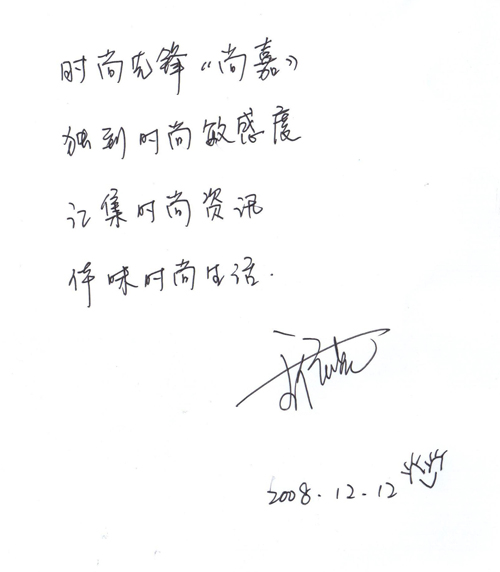 时尚先锋《尚嘉》
独到时尚敏感度
汇集时尚资讯
体味时尚生活.
2008.12.12